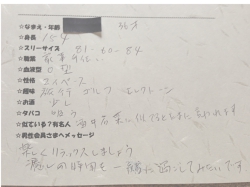 ☆なまえ・年齢 36才
☆身長 154
☆スリーサイズ 81-60-84
☆職業 家事手伝い
☆血液型 O型
☆性格 マイペース
☆趣味 旅行 ゴルフ
☆お酒 少し
☆タバコ 吸う
☆似ている?有名人
☆男性会員さまへメッセージ
楽しくリラックスしましょう
癒しの時間を一緒に過ごしてみたいです